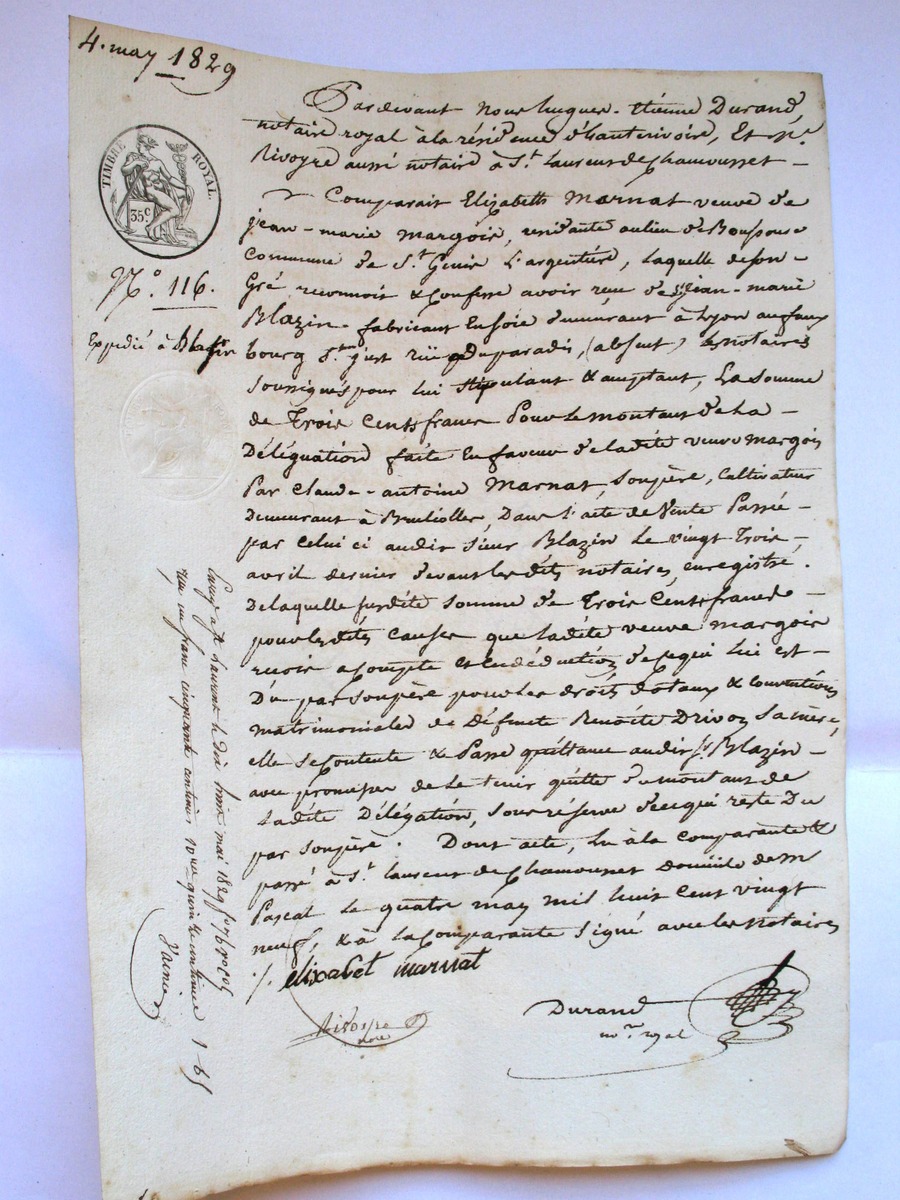 4. may 1829
Pardevant Nous hugues-étienne Durand,
notaire royal à la résidence d'hauterivoire, Et
Rivoyre aussi notaire à St. Laurent de Chamousset —
Comparait Elizabeth Marnat veuve de
jean-marie margois, résidante au lieu de
Commune de St. Genis L'argentière, laquelle de son
Gré reconnoit & Confesse avoir reçu de Sr. jean-marie
Blazin fabricant En soie demeurant à Lyon au faux
bourg St. just rüe du paradis, (absent) les notaires
soussignés pour lui stipulant & acceptant, La somme
de Trois Cents francs Pour le montant de La —
Déléguation faite En faveur de ladite veuve margois
Par Claude-antoine Marnat, son père, Cultivateur
Demeurant à Brullioles, Dans l'acte de Vente Passé —
par Celui ci audit sieur Blazin Le vingt Trois —
avril dernier devant les dits notaires, enregistré.
De laquelle susdite somme de Trois Cents francs
pour lesdites Causes que ladite veuve margois
reçoit acompte et En déduction de ce qui lui est —
Dû par son père pour les droits dotaux & Conventions
matrimoniales de Défunte Benoîte Drivon sa mère,
elle se Contente & Passe quittance audit Sr. Blazin —
avec promesse de Le tenir quitte du montant de
Ladite Délégation, sous réserve de ce qui reste Dû
par son père. Dont acte, lu à la comparante &
passé à St. laurent de Chamousset Domicile de m
Pascal Le quatre may mil huit cent vingt
neuf, & à La Comparante signé avec les notaires
elixabet marnat
Rivoyre
nore
Durand
nore. royal
TIMBRE ROYAL.
35c
No. 116.
Expédié à Blazin
Enreg. à St. Laurent le dix mai 1829
reçu un franc cinquante centimes quinze centimes 1-65